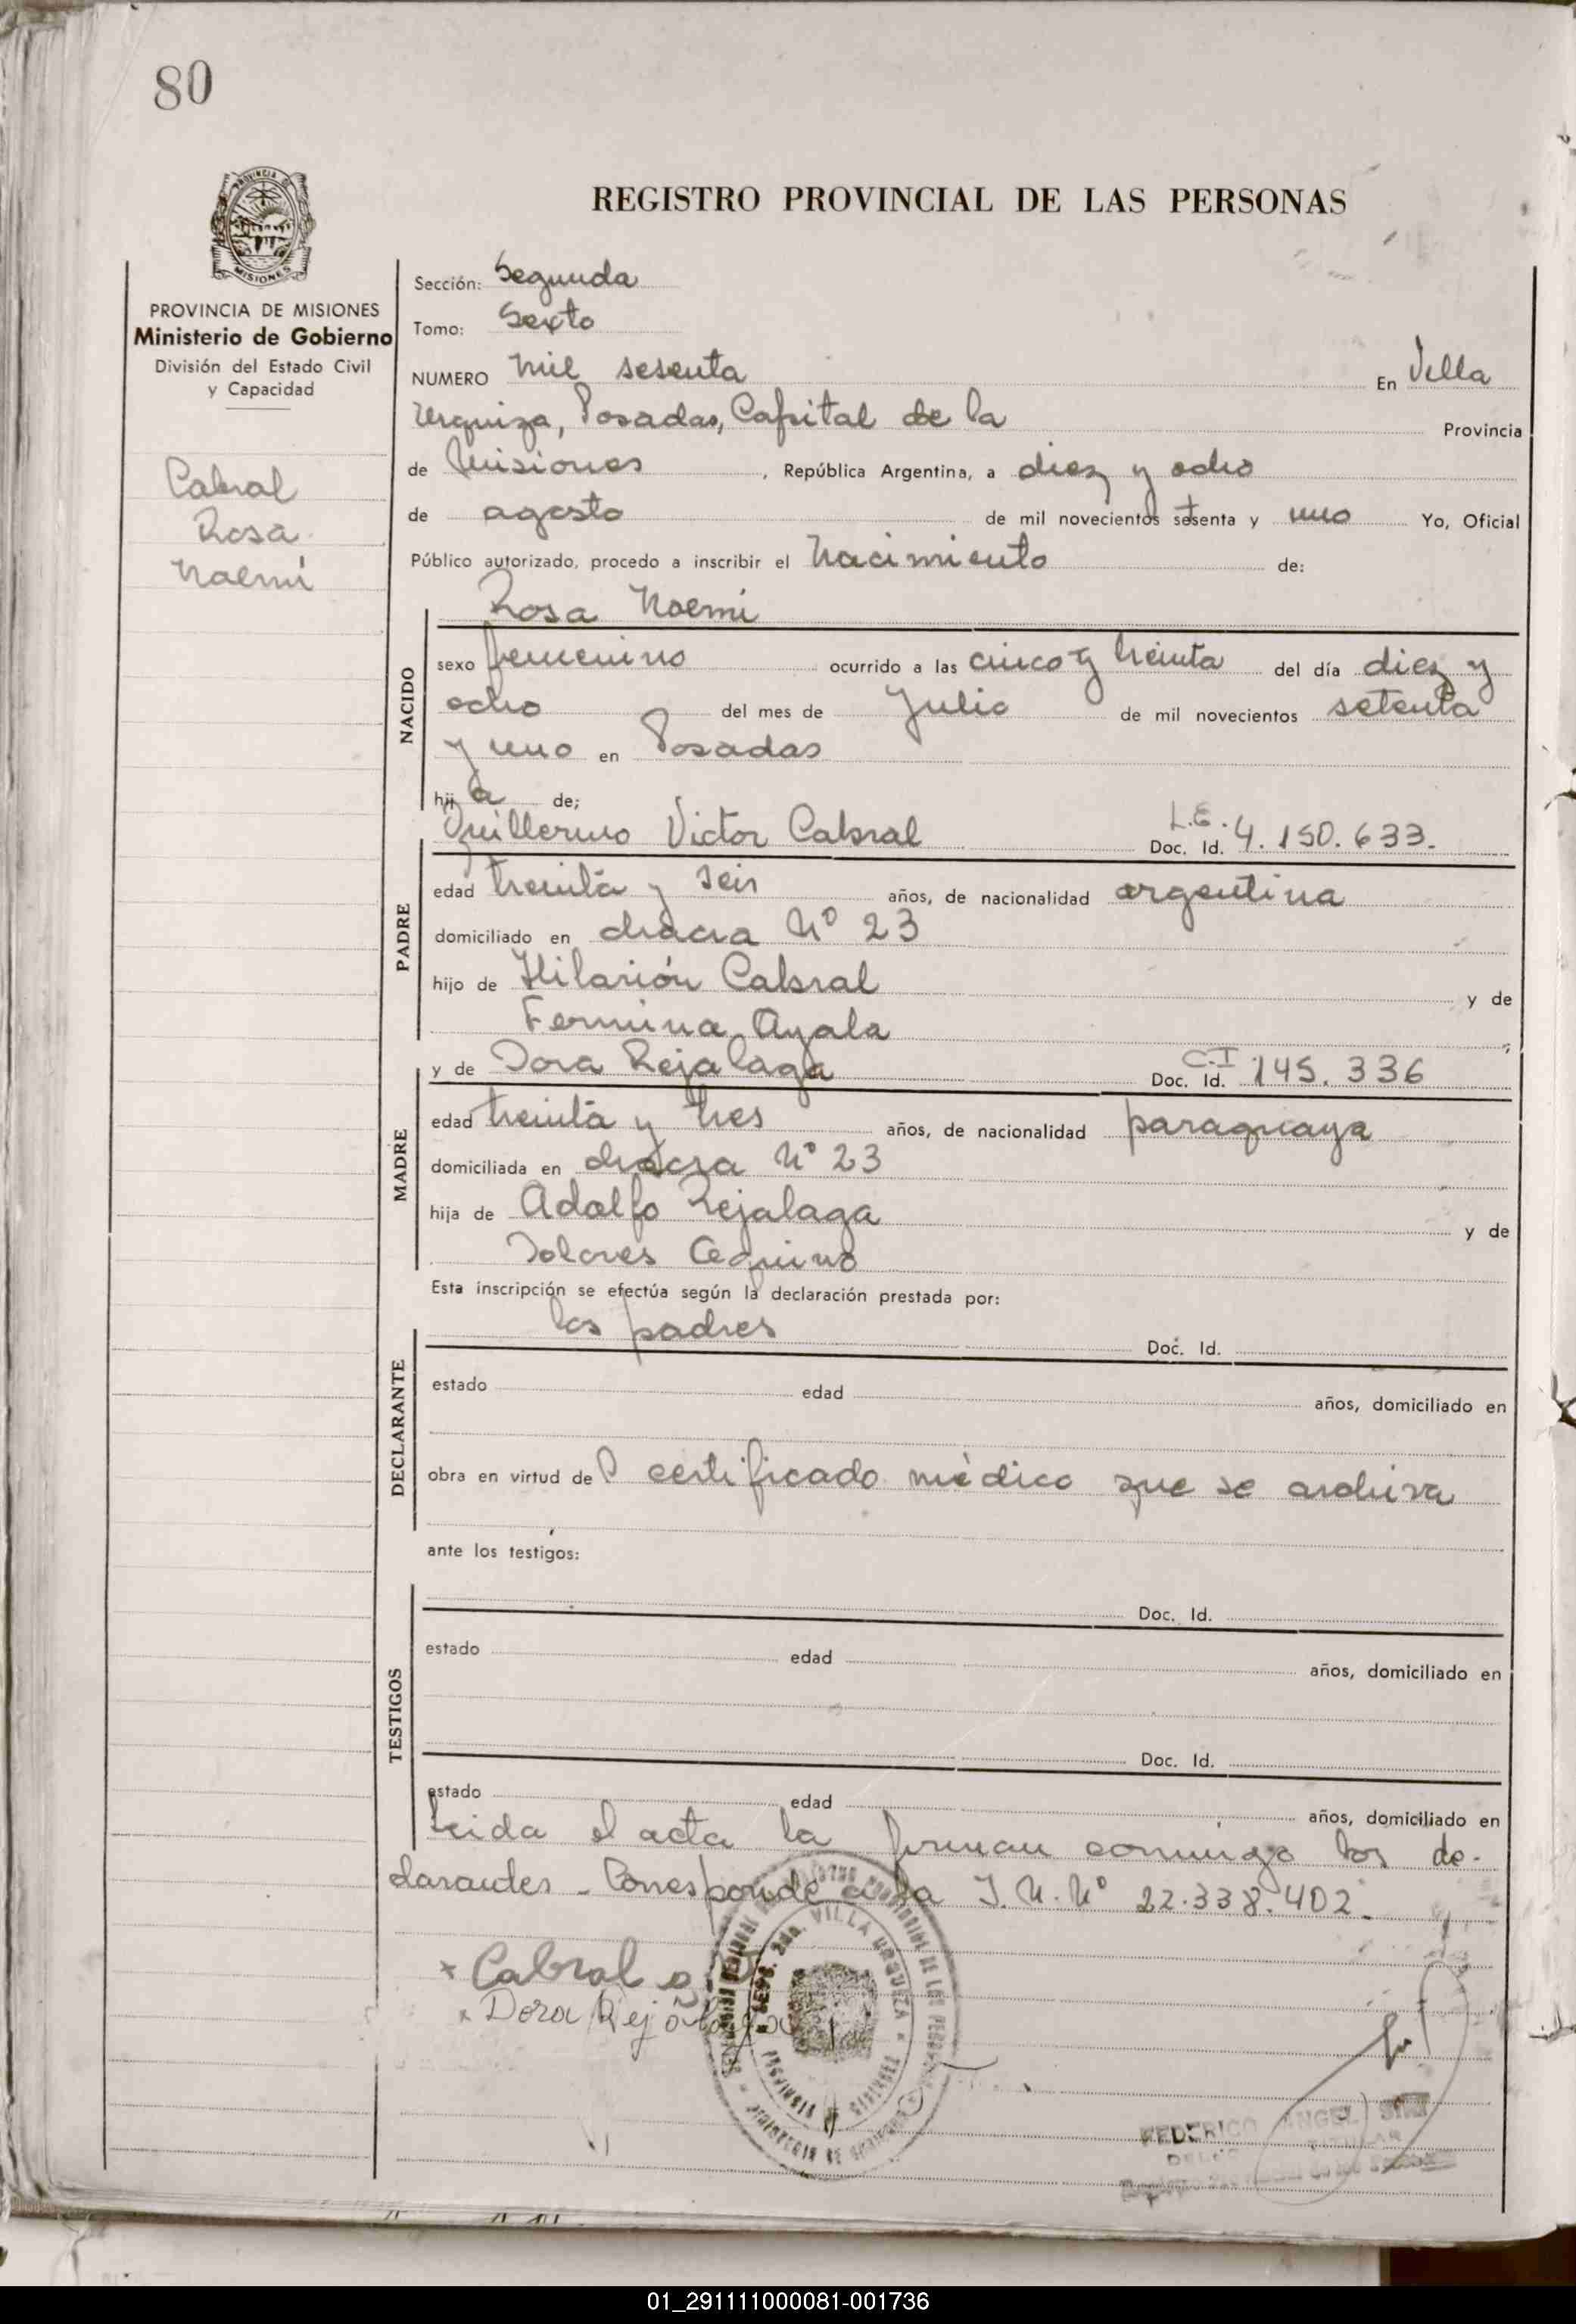 80
PROVINCIA DE
MISIONES
REGISTRO PROVINCIAL DE LAS PERSONAS
PROVINCIA DE MISIONES
Ministerio de Gobierno
División del Estado Civil
y Capacidad
Cabral
Rosa
Noemí
Sección: Segunda
Tomo: Sexto
NUMERO mil sesenta En Villa
Urquiza, Posadas, Capital de la Provincia
de Misiones, República Argentina, a diez y ocho
de agosto de mil novecientos setenta y uno Yo, Oficial
Público autorizado, procedo a inscribir el Nacimiento de:
Rosa Noemí
NACIDO
sexo femenino ocurrido a las cinco y treinta del día diez y
ocho del mes de Julio de mil novecientos setenta
y uno en Posadas
hija de;
PADRE
Guillermo Victor Cabral Doc. Id. L.E. 4.150.633.
edad treinta y seis años, de nacionalidad argentina
domiciliado en chacra Nº 23
hijo de Hilarión Cabral y de
Fermina Ayala
MADRE
y de Dora Rejalaga Doc. Id. C.I 145.336
edad treinta y tres años, de nacionalidad paraguaya
domiciliada en chacra Nº 23
hija de Adolfo Rejalaga y de
Dolores Aquino
Esta inscripción se efectúa según la declaración prestada por:
DECLARANTE
los padres Doc. Id.
estado edad años, domiciliado en
obra en virtud del certificado médico que se archiva
ante los testigos:
TESTIGOS
Doc. Id.
estado edad años, domiciliado en
Doc. Id.
estado edad años, domiciliado en
Leida el acta la firman conmigo los de-
clarantes - Corresponde a la I.N.Nº 22.338.402.
Cabral
Dora Rejalaga
SECC. 2da. VILLA URQUIZA
FEDERICO ANGEL
TITULAR
01_291111000081-001736